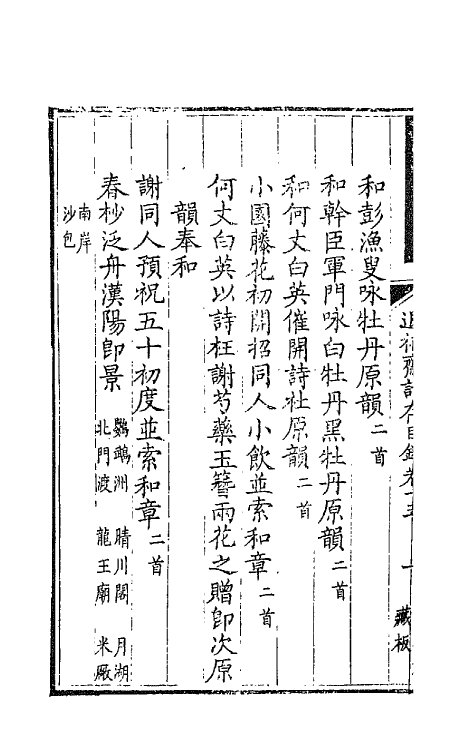 和彭漁叟咏牡丹原韻二首
和幹臣軍門咏白牡丹黑牡丹原韻二首
和何丈白英催開詩社原韻二首
小園藤花初開招同人小飲並索和章二首
何丈白英以詩枉謝芍藥玉簪兩花之贈卽次原
韻奉和
謝同人預祝五十初度並索和章二首
春杪泛舟漢陽卽景 鸚鵡洲 晴川閣 月湖
北門渡 龍王廟 米厰
南岸
沙包
詩存目錄卷十
藏板